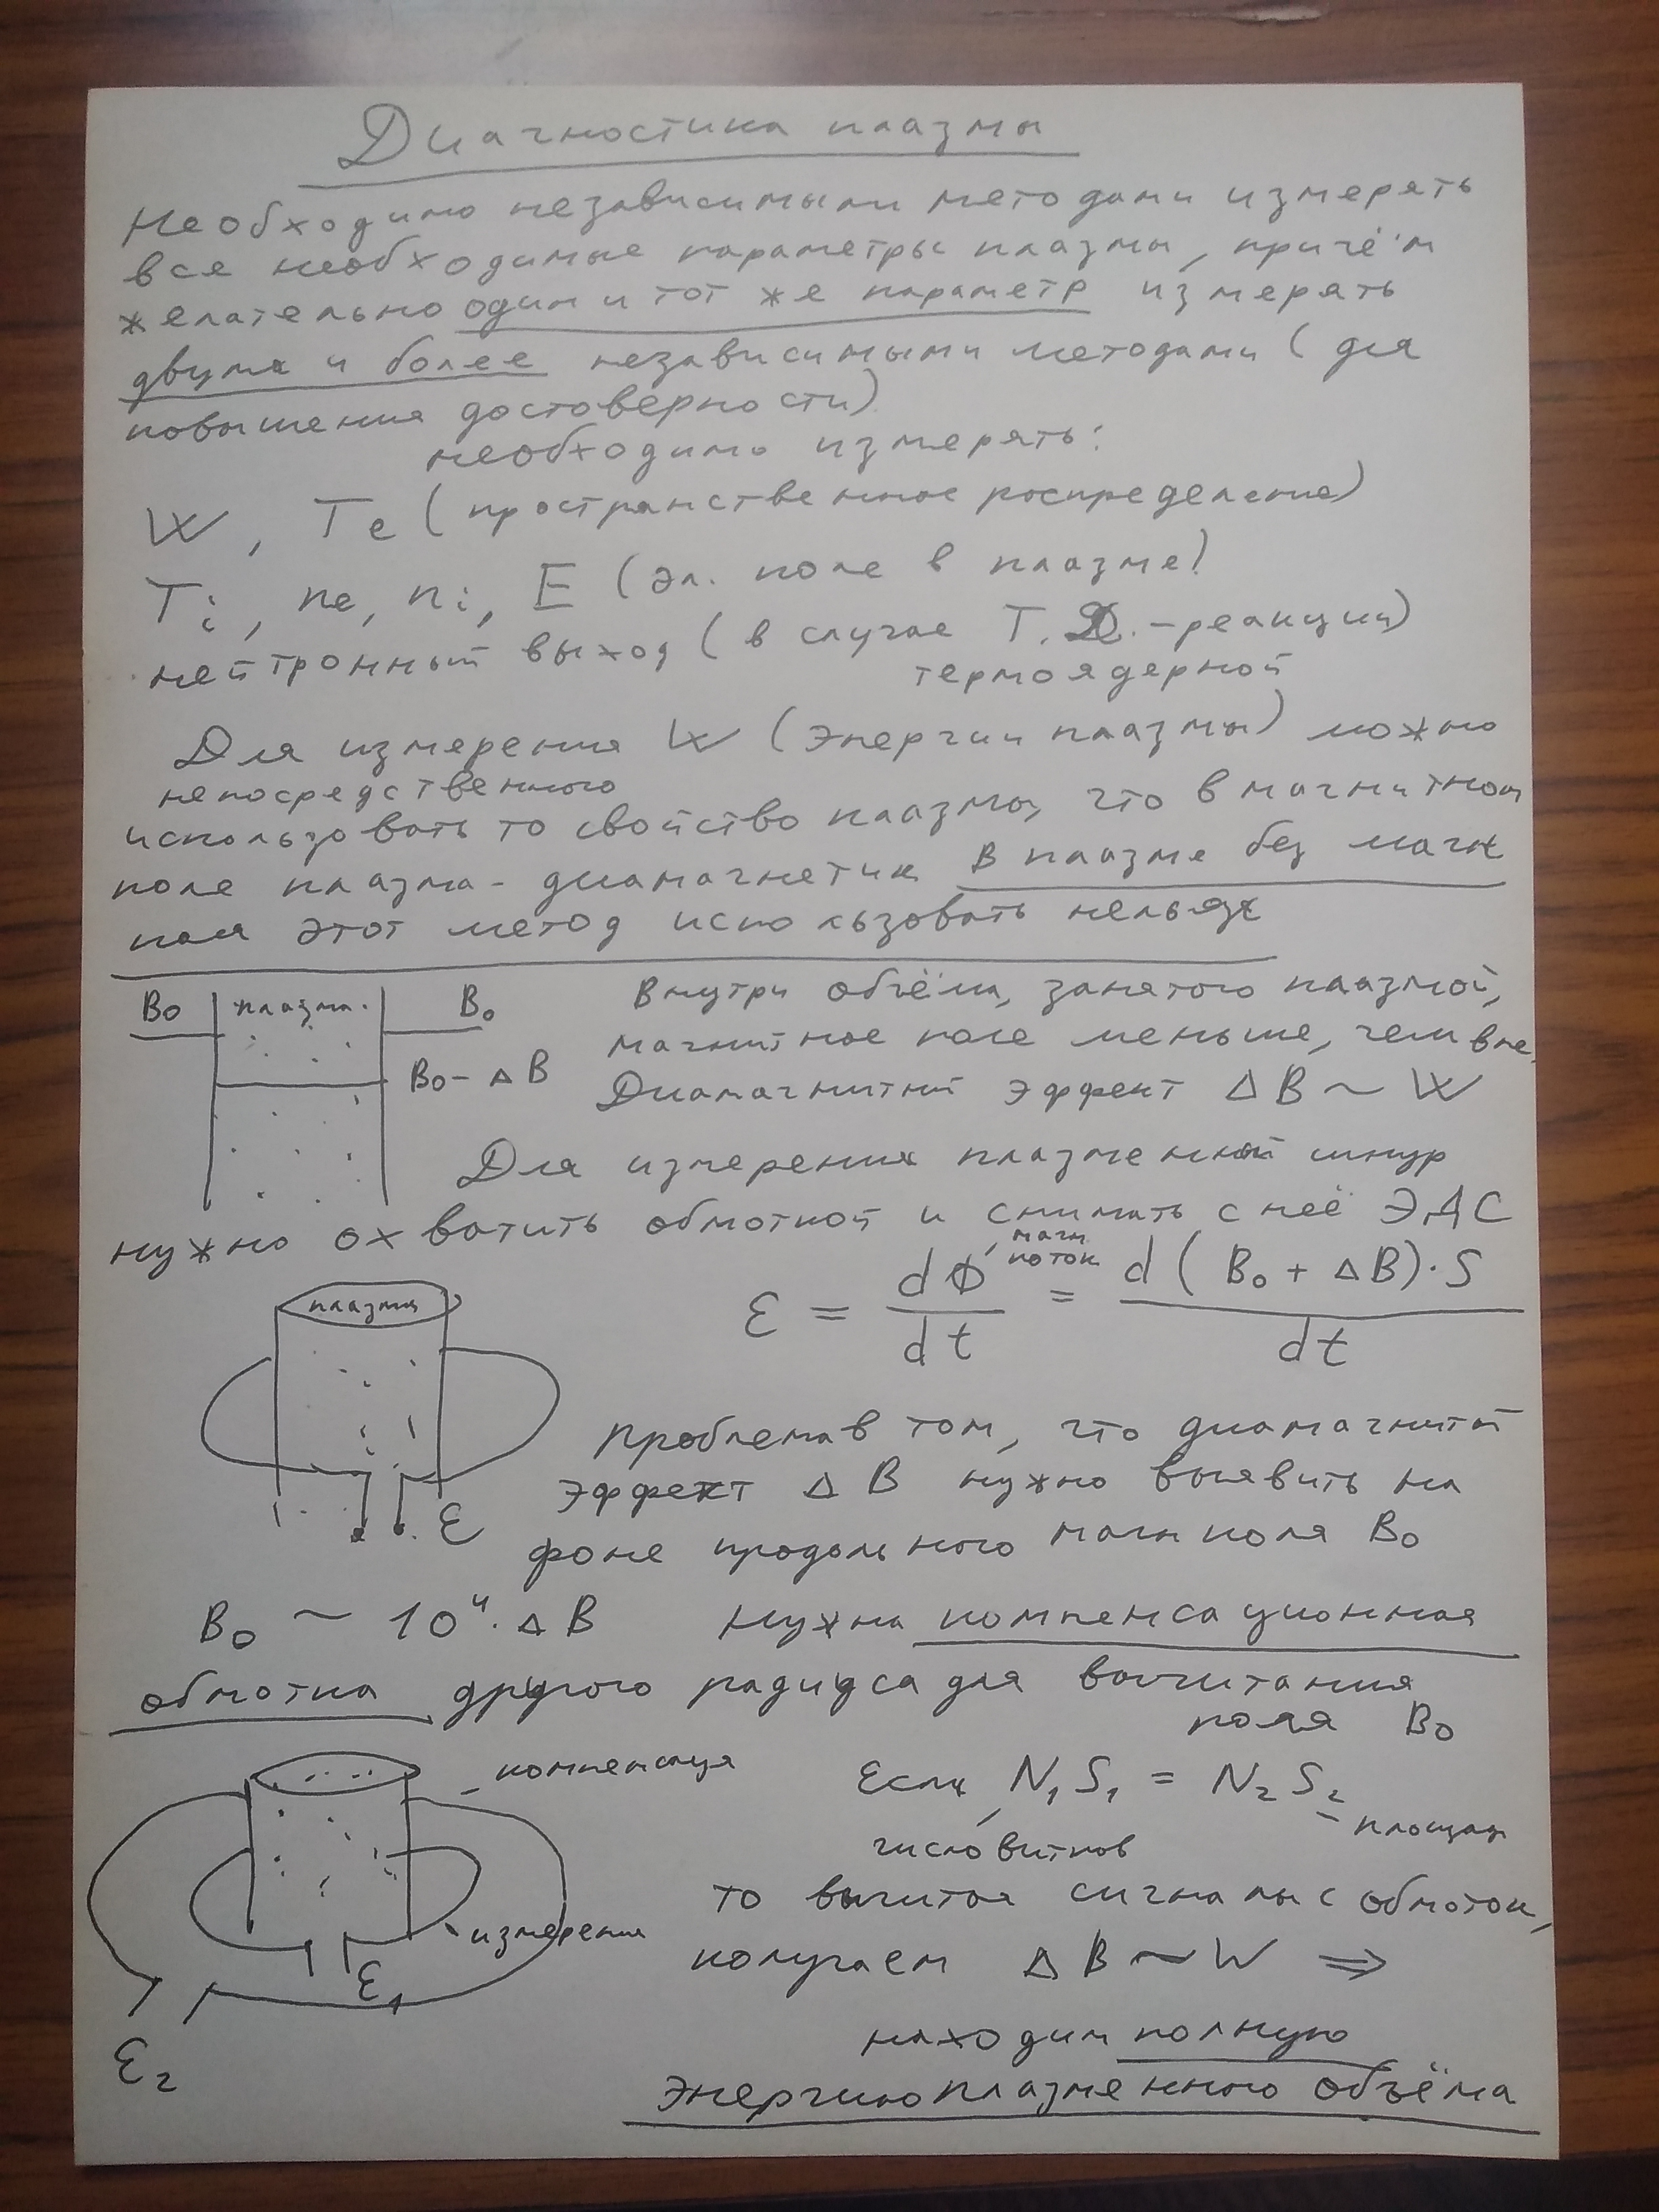 Диагностика плазмы
Необходимо независимыми методами измерять
все необходимые параметры плазмы, причём
желательно один и тот же параметр измерять
двумя и более независимыми методами (для
повышения достоверности)
необходимо измерять:
W, Te (пространственное распределение)
Ti, ne, ni, E (эл. поле в плазме)
нейтронный выход (в случае Т.Я.-реакции)
термоядерной
Для измерения W (энергии плазмы) можно
непосредственного
использовать то свойство плазмы, что в магнитном
поле плазма - диамагнетик В плазме без магн
поля этот метод использовать нельзя
B₀ плазма. B₀
B₀ - ΔB
Внутри объёма, занятого плазмой,
магнитное поле меньше, чем вне.
Диамагнитный эффект ΔB ~ W
Для измерения плазменный шнур
нужно охватить обмоткой и снимать с неё ЭДС
магн. поток
ℰ = dΦ/dt = d(B₀ + ΔB)·S/dt
плазма
ℰ
Проблема в том, что диамагнитный
эффект ΔB нужно выявить на
фоне продольного магн поля B₀
B₀ ~ 10⁴·ΔB Нужна компенсационная
обмотка другого радиуса для вычитания
поля B₀
компенсация
измерения
ℰ₁
ℰ₂
Если N₁S₁ = N₂S₂
площадь
число витков
то вычитая сигналы с обмоток,
получаем ΔB ~ W ⇒
находим полную
энергию плазменного объёма